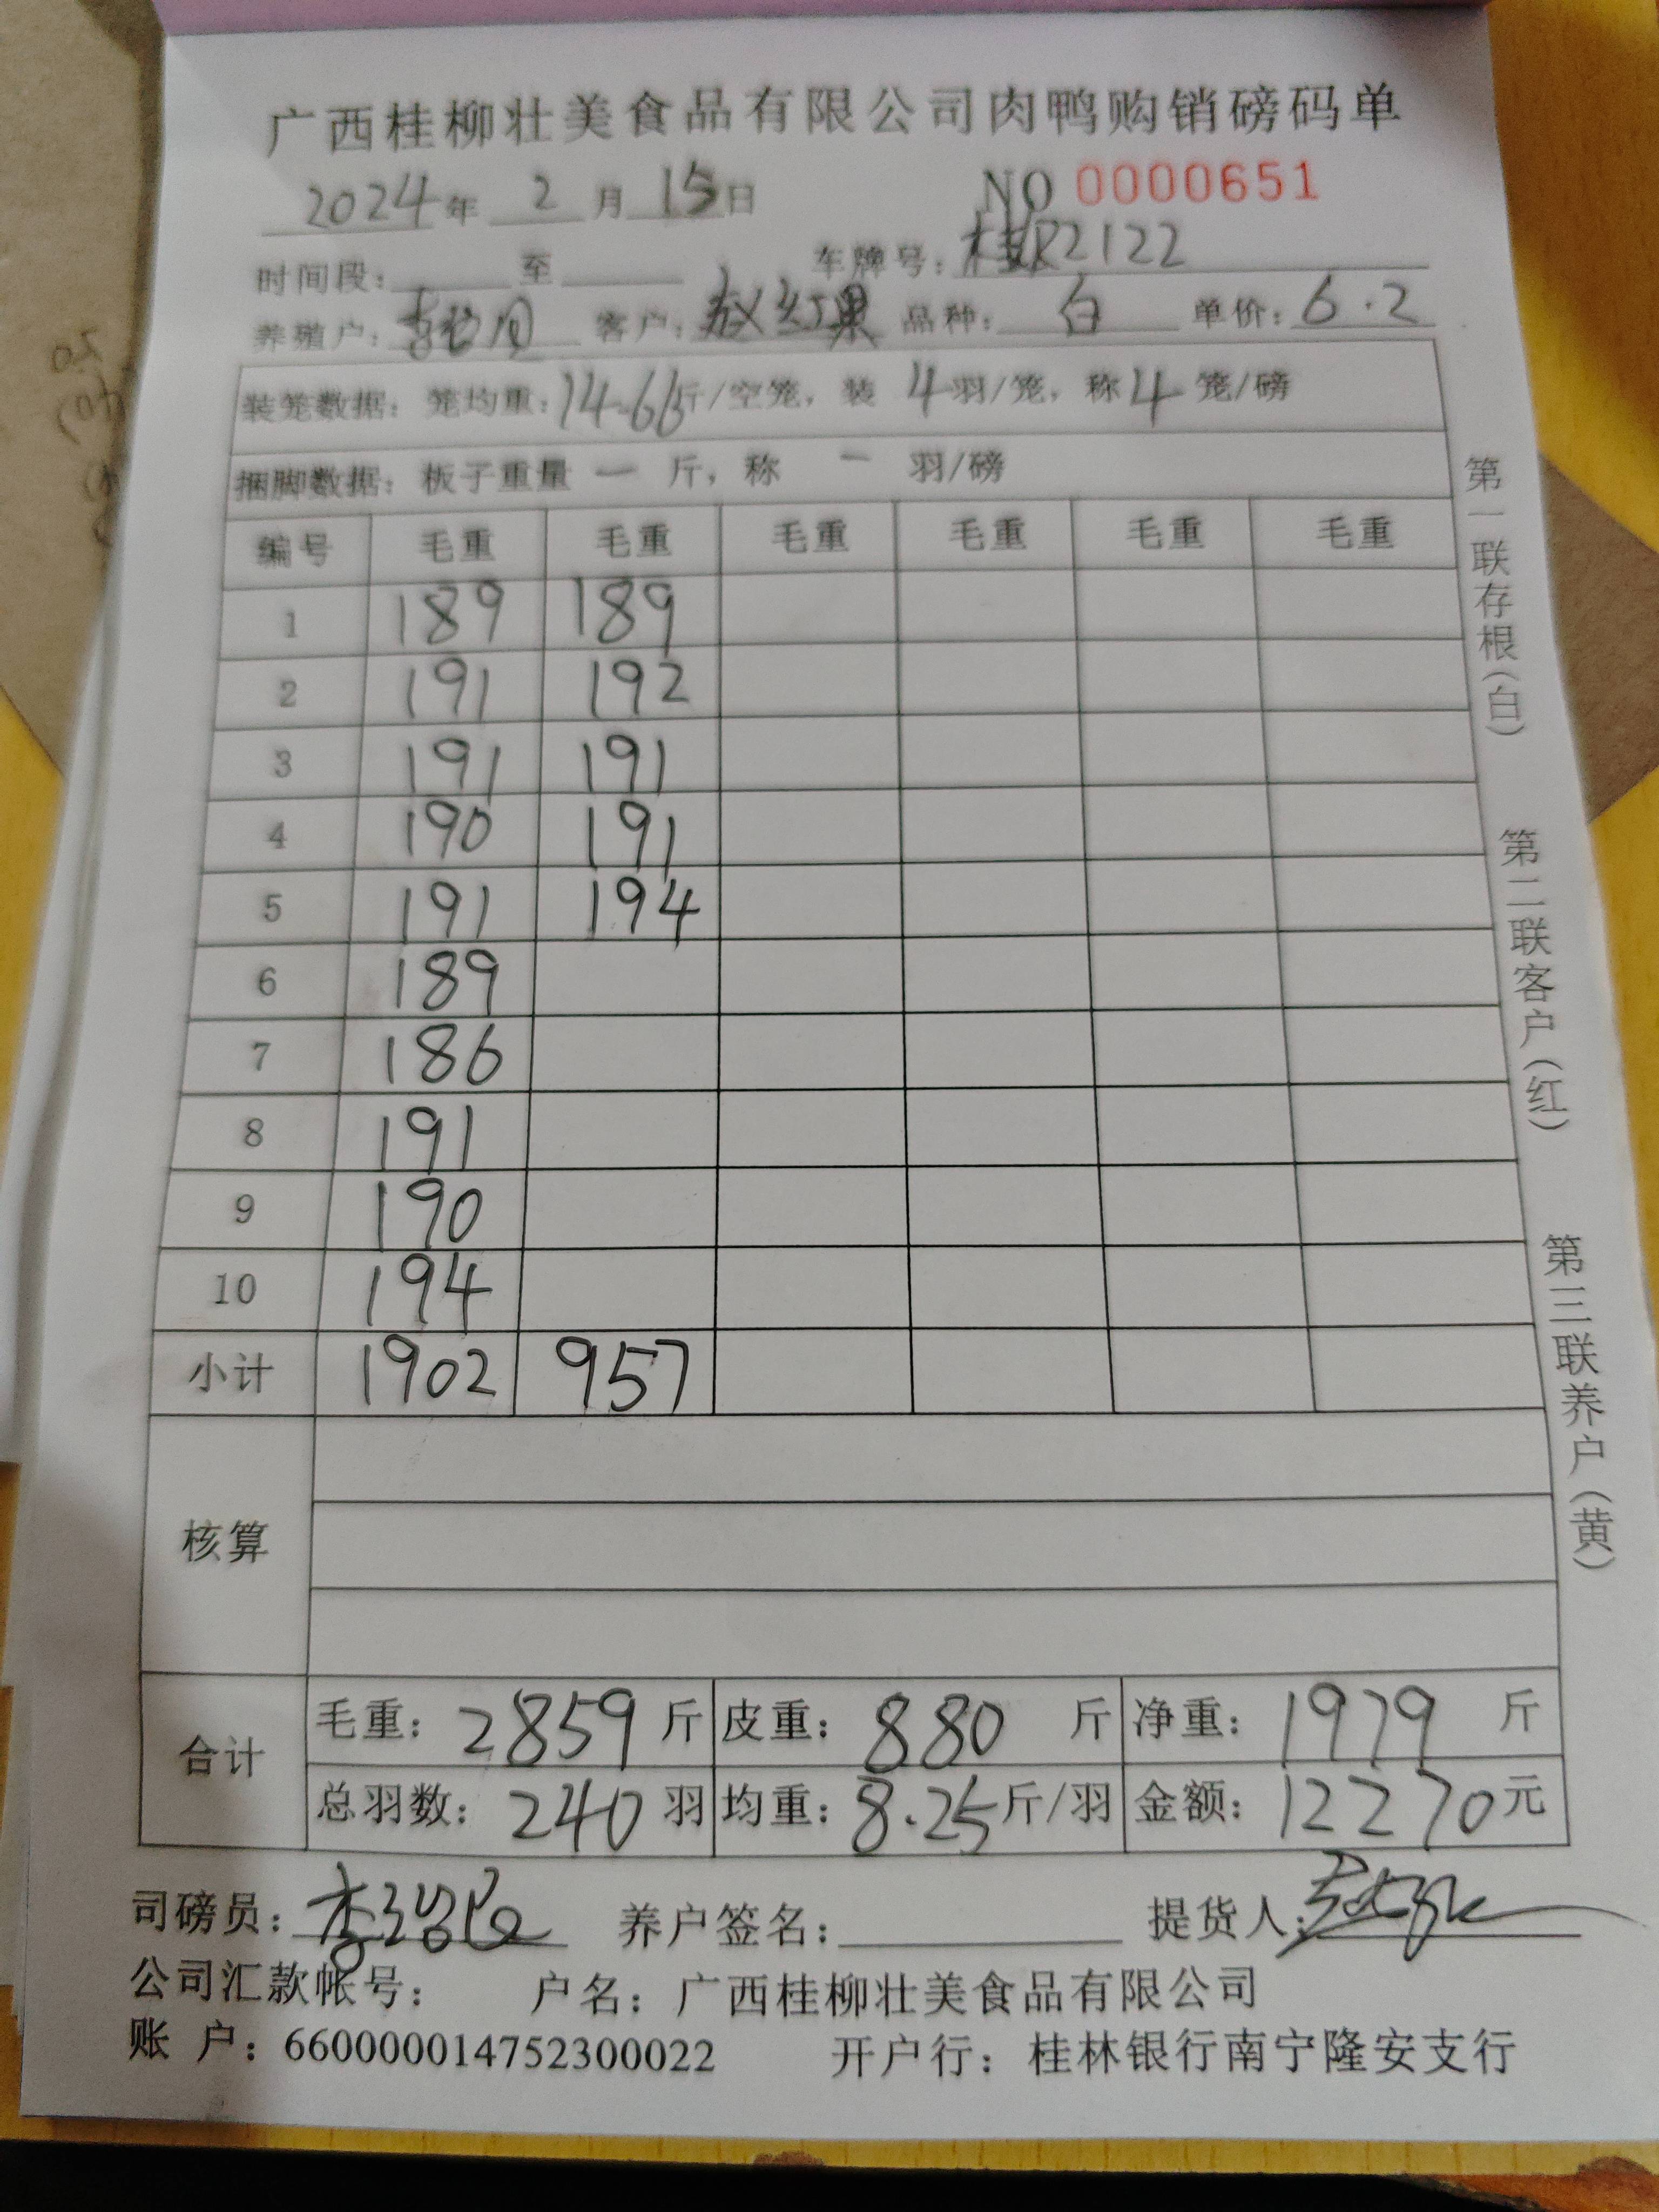 广西桂柳壮美食品有限公司肉鸭购销磅码单
2024年 2 月 15日 NO 0000651
时间段: 至 车牌号: 桂R2122
养殖户: 客户: 赵红果 品种: 白 单价: 6.2
装笼数据: 笼均重: 14.66斤/空笼, 装 4羽/笼, 称4 笼/磅
捆脚数据: 板子重量 一 斤, 称 一 羽/磅
编号 毛重 毛重 毛重 毛重 毛重 毛重
1 189 189
2 191 192
3 191 191
4 190 191
5 191 194
6 189
7 186
8 191
9 190
10 194
小计 1902 957
核算
合计 毛重: 2859 斤 皮重: 880 斤 净重: 1979 斤
总羽数: 240 羽 均重: 8.25斤/羽 金额: 12270元
司磅员: 养户签名: 提货人:
公司汇款帐号: 户名: 广西桂柳壮美食品有限公司
账 户: 660000014752300022 开户行: 桂林银行南宁隆安支行
第一联存根(白) 第二联客户(红) 第三联养户(黄)